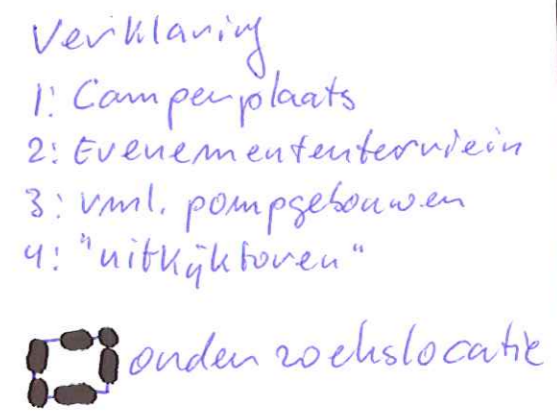 Verklaring
1: Camperplaats
2: Evenemententerrein
3: vml. pompgebouwen
4: "uitkijktoren"
onderzoekslocatie